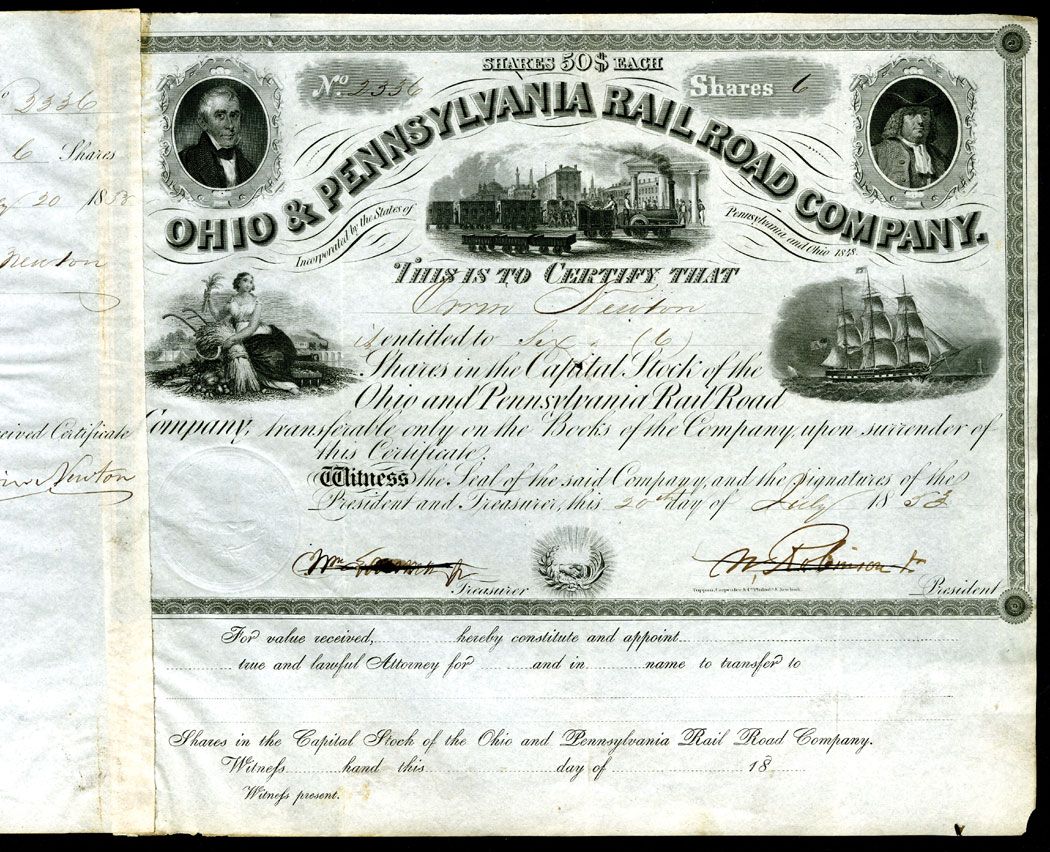 No 2336
6 Shares
20 1853
Newton
Received Certificate
Newton
SHARES 50$ EACH
No. 2336
Shares 6
OHIO & PENNSYLVANIA RAIL ROAD COMPANY.
Incorporated by the States of Pennsylvania and Ohio 1848.
THIS IS TO CERTIFY THAT
Orrin Newton
is entitled to Six (6)
Shares in the Capital Stock of the
Ohio and Pennsylvania Rail Road
Company, transferable only on the Books of the Company, upon surrender of
this Certificate.
Witness the Seal of the said Company, and the signatures of the
President and Treasurer, this 20th day of July 1853
Wm Robinson Jr
Treasurer
Toppan, Carpenter & Co. Philada. & New York.
President
For value received, hereby constitute and appoint
true and lawful Attorney for and in name to transfer to
Shares in the Capital Stock of the Ohio and Pennsylvania Rail Road Company.
Witness hand this day of 18
Witness present.